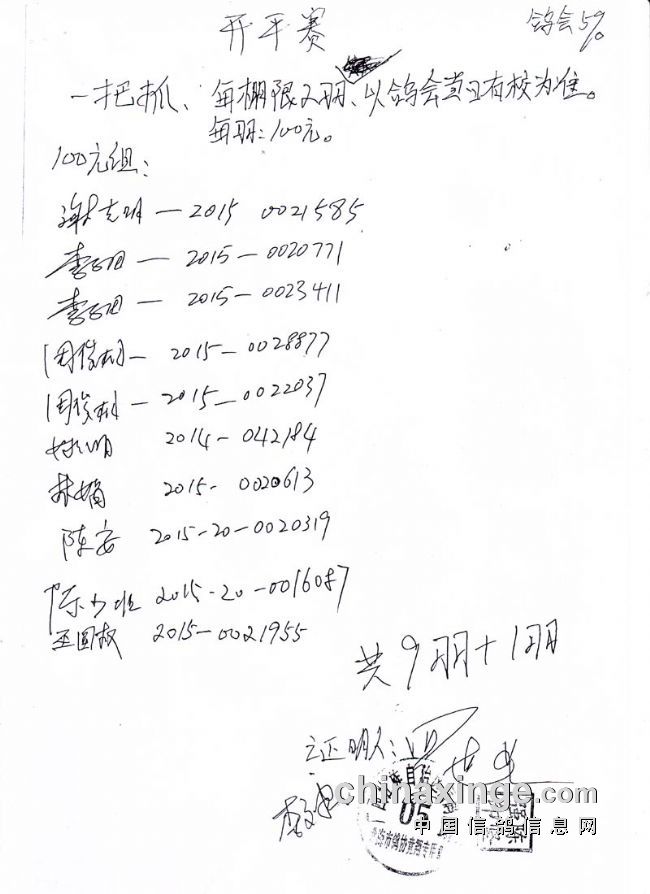 开平赛
鸽会5%
一把抓、每棚限2羽、以鸽会当日有校为准。
每羽:100元。
100元组:
谢志明—2015 0021585
李 — 2015-0020771
李 — 2015-0023411
周俊 — 2015-0028877
周俊 — 2015-0022037
姚 明 2014-042184
林娟 2015-0020613
陈安 2015-20-0020319
陈少 2015-20-0016087
王国权 2015-0021955
共9羽+1羽
证明人:
李
自治
05
市鸽协竞翔专用
chinaxinge.com
中国信鸽信息网